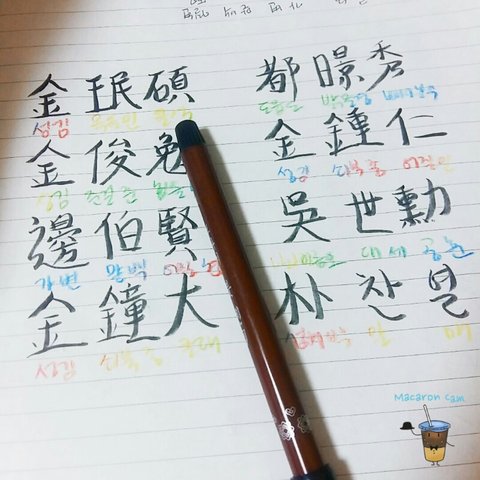 金 珉 碩
성김 옥돌민 클석
金 俊 勉
성김 준걸준
邊 伯 賢
가변 맏백 어질현
金 鐘 大
성김 쇠북종 큰대
都 暻 秀
도읍도 밝을경 빼어날수
金 鍾 仁
성김 쇠북종 어질인
吳 世 勳
대세 공훈
朴 찬 열
Macaron Cam